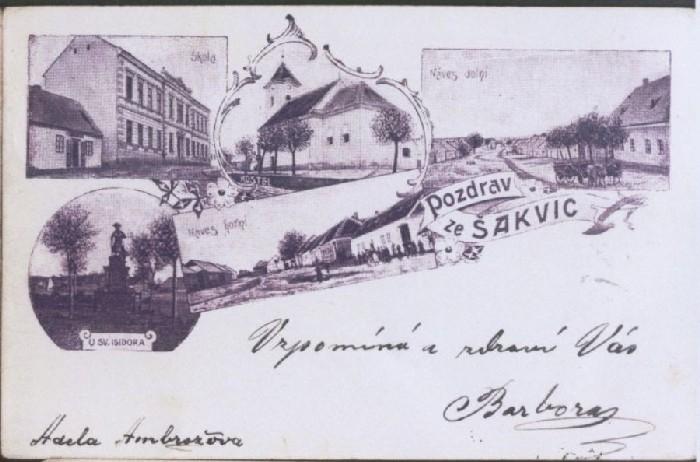 Škola
Kostel
Náves dolní
Náves horní
Pozdrav
ze ŠAKVIC
U SV. ISIDORA
Vzpomíná a zdraví Vás
Barbora
Adela Ambrožova